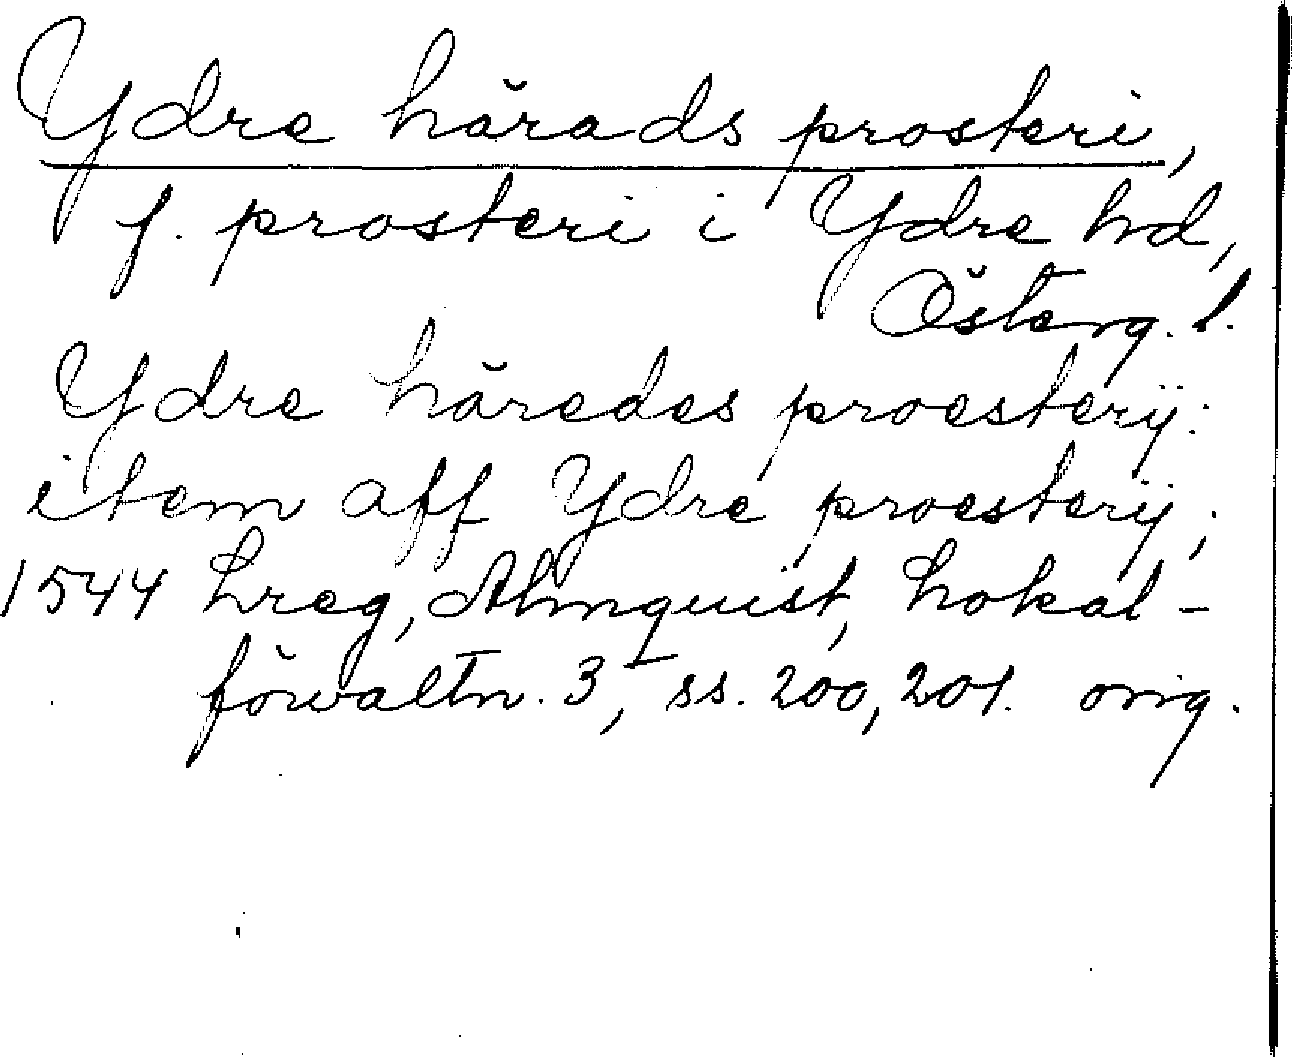 Ydre härads prosteri,
f. prosteri i Ydre hd,
Österg. l.
Ydre häredes proesterij:
item aff Ydre proesterij;
1544 Lreg, Almquist, Lokal-
förvaltn. 3, ss. 200, 201. orig.